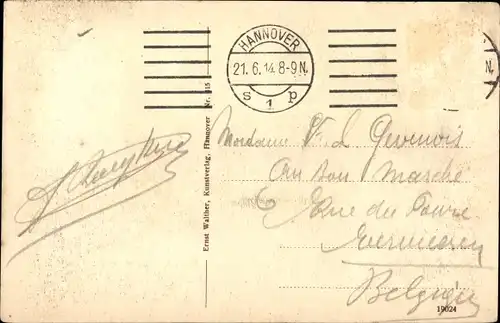 HANNOVER
21. 6. 14. 8-9 N.
S 1 P
N.
Ernst Walther, Kunstverlag, Hannover Nr. 315
Madame V. L. Gevenois
Au bon Marché
6 Rue du
Belgique
19024